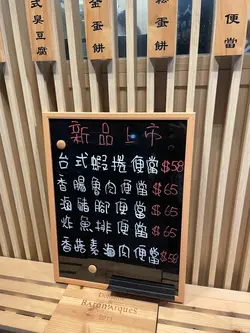 式臭豆腐
蛋餅
蛋餅
便當
新品上市
台式蝦捲便當$58
香腸魯肉便當$65
滷豬腳便當$65
炸魚排便當$65
香菇素滷肉便當$58
Baron'Arques